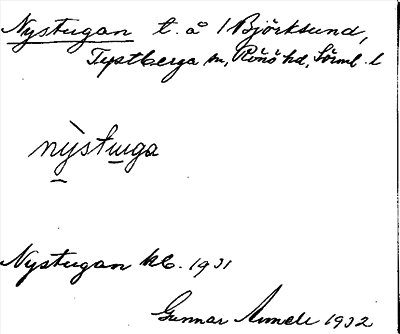 Nystugan t. å 1 Björksund,
Tystberga sn, Rönö hd, Sörml. l
nỳstuga
Nystugan kb. 1931
Gunnar Linde 1932